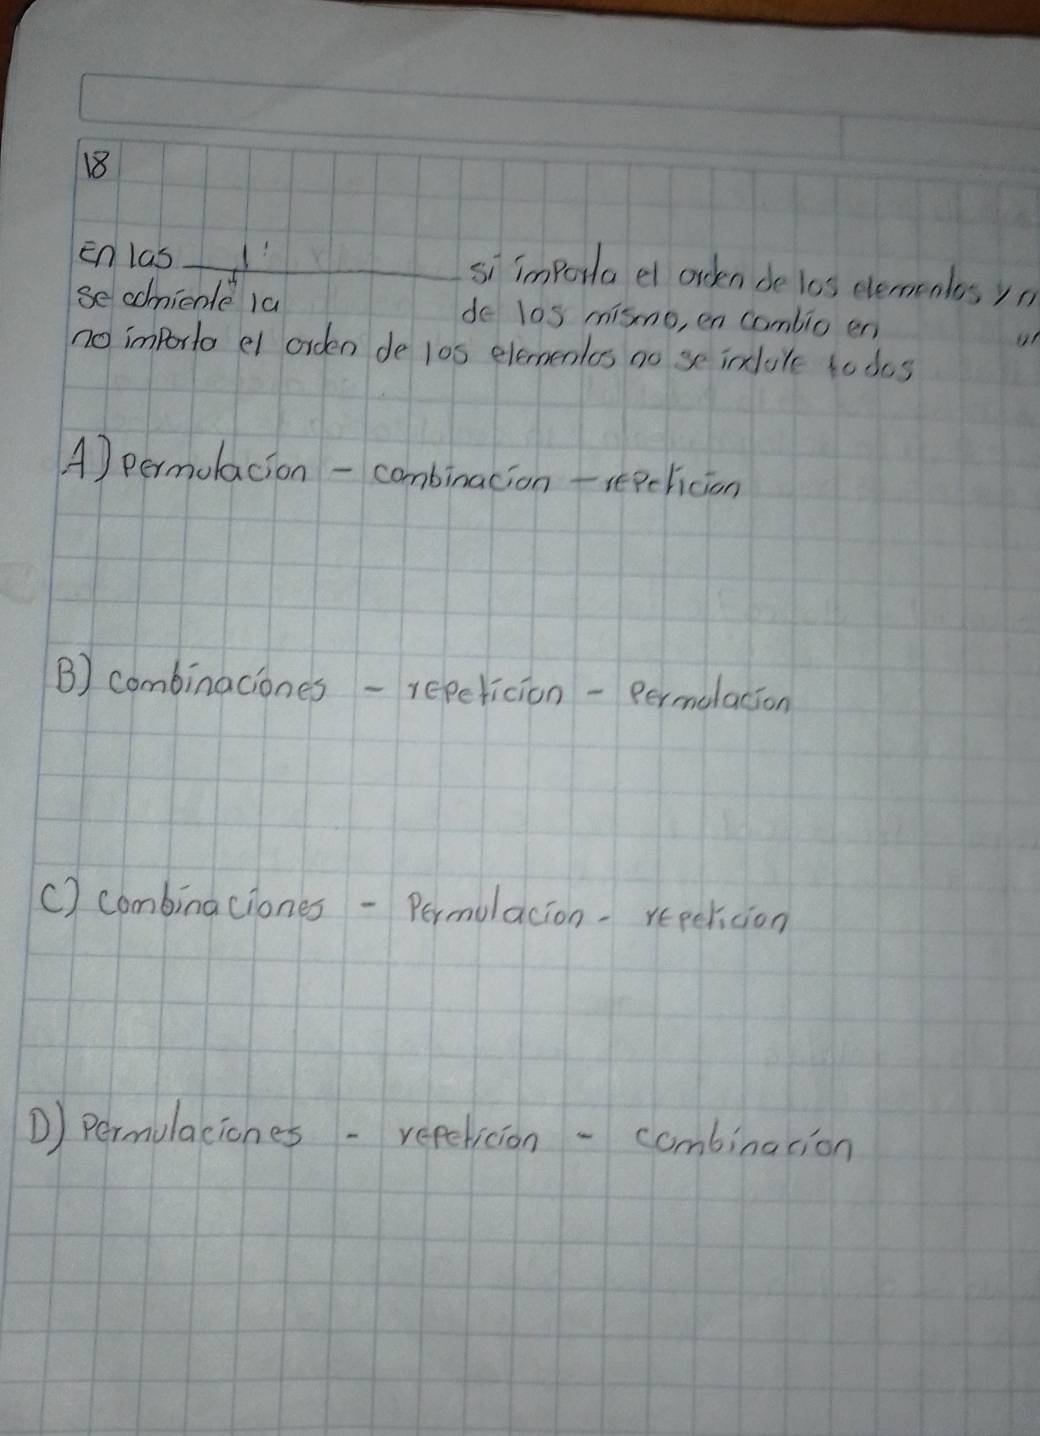 18
En las ________ si importa el orden de los elementos y n
se admiente la de los mismo, en cambio en
no importa el orden de los elementos no se indule todos
A) permutacion - combinacion - repeticion
B) combinaciones - repeticion - Permutacion
C) combinaciones - Permutacion - repeticion
D) Permutaciones - repeticion - combinacion